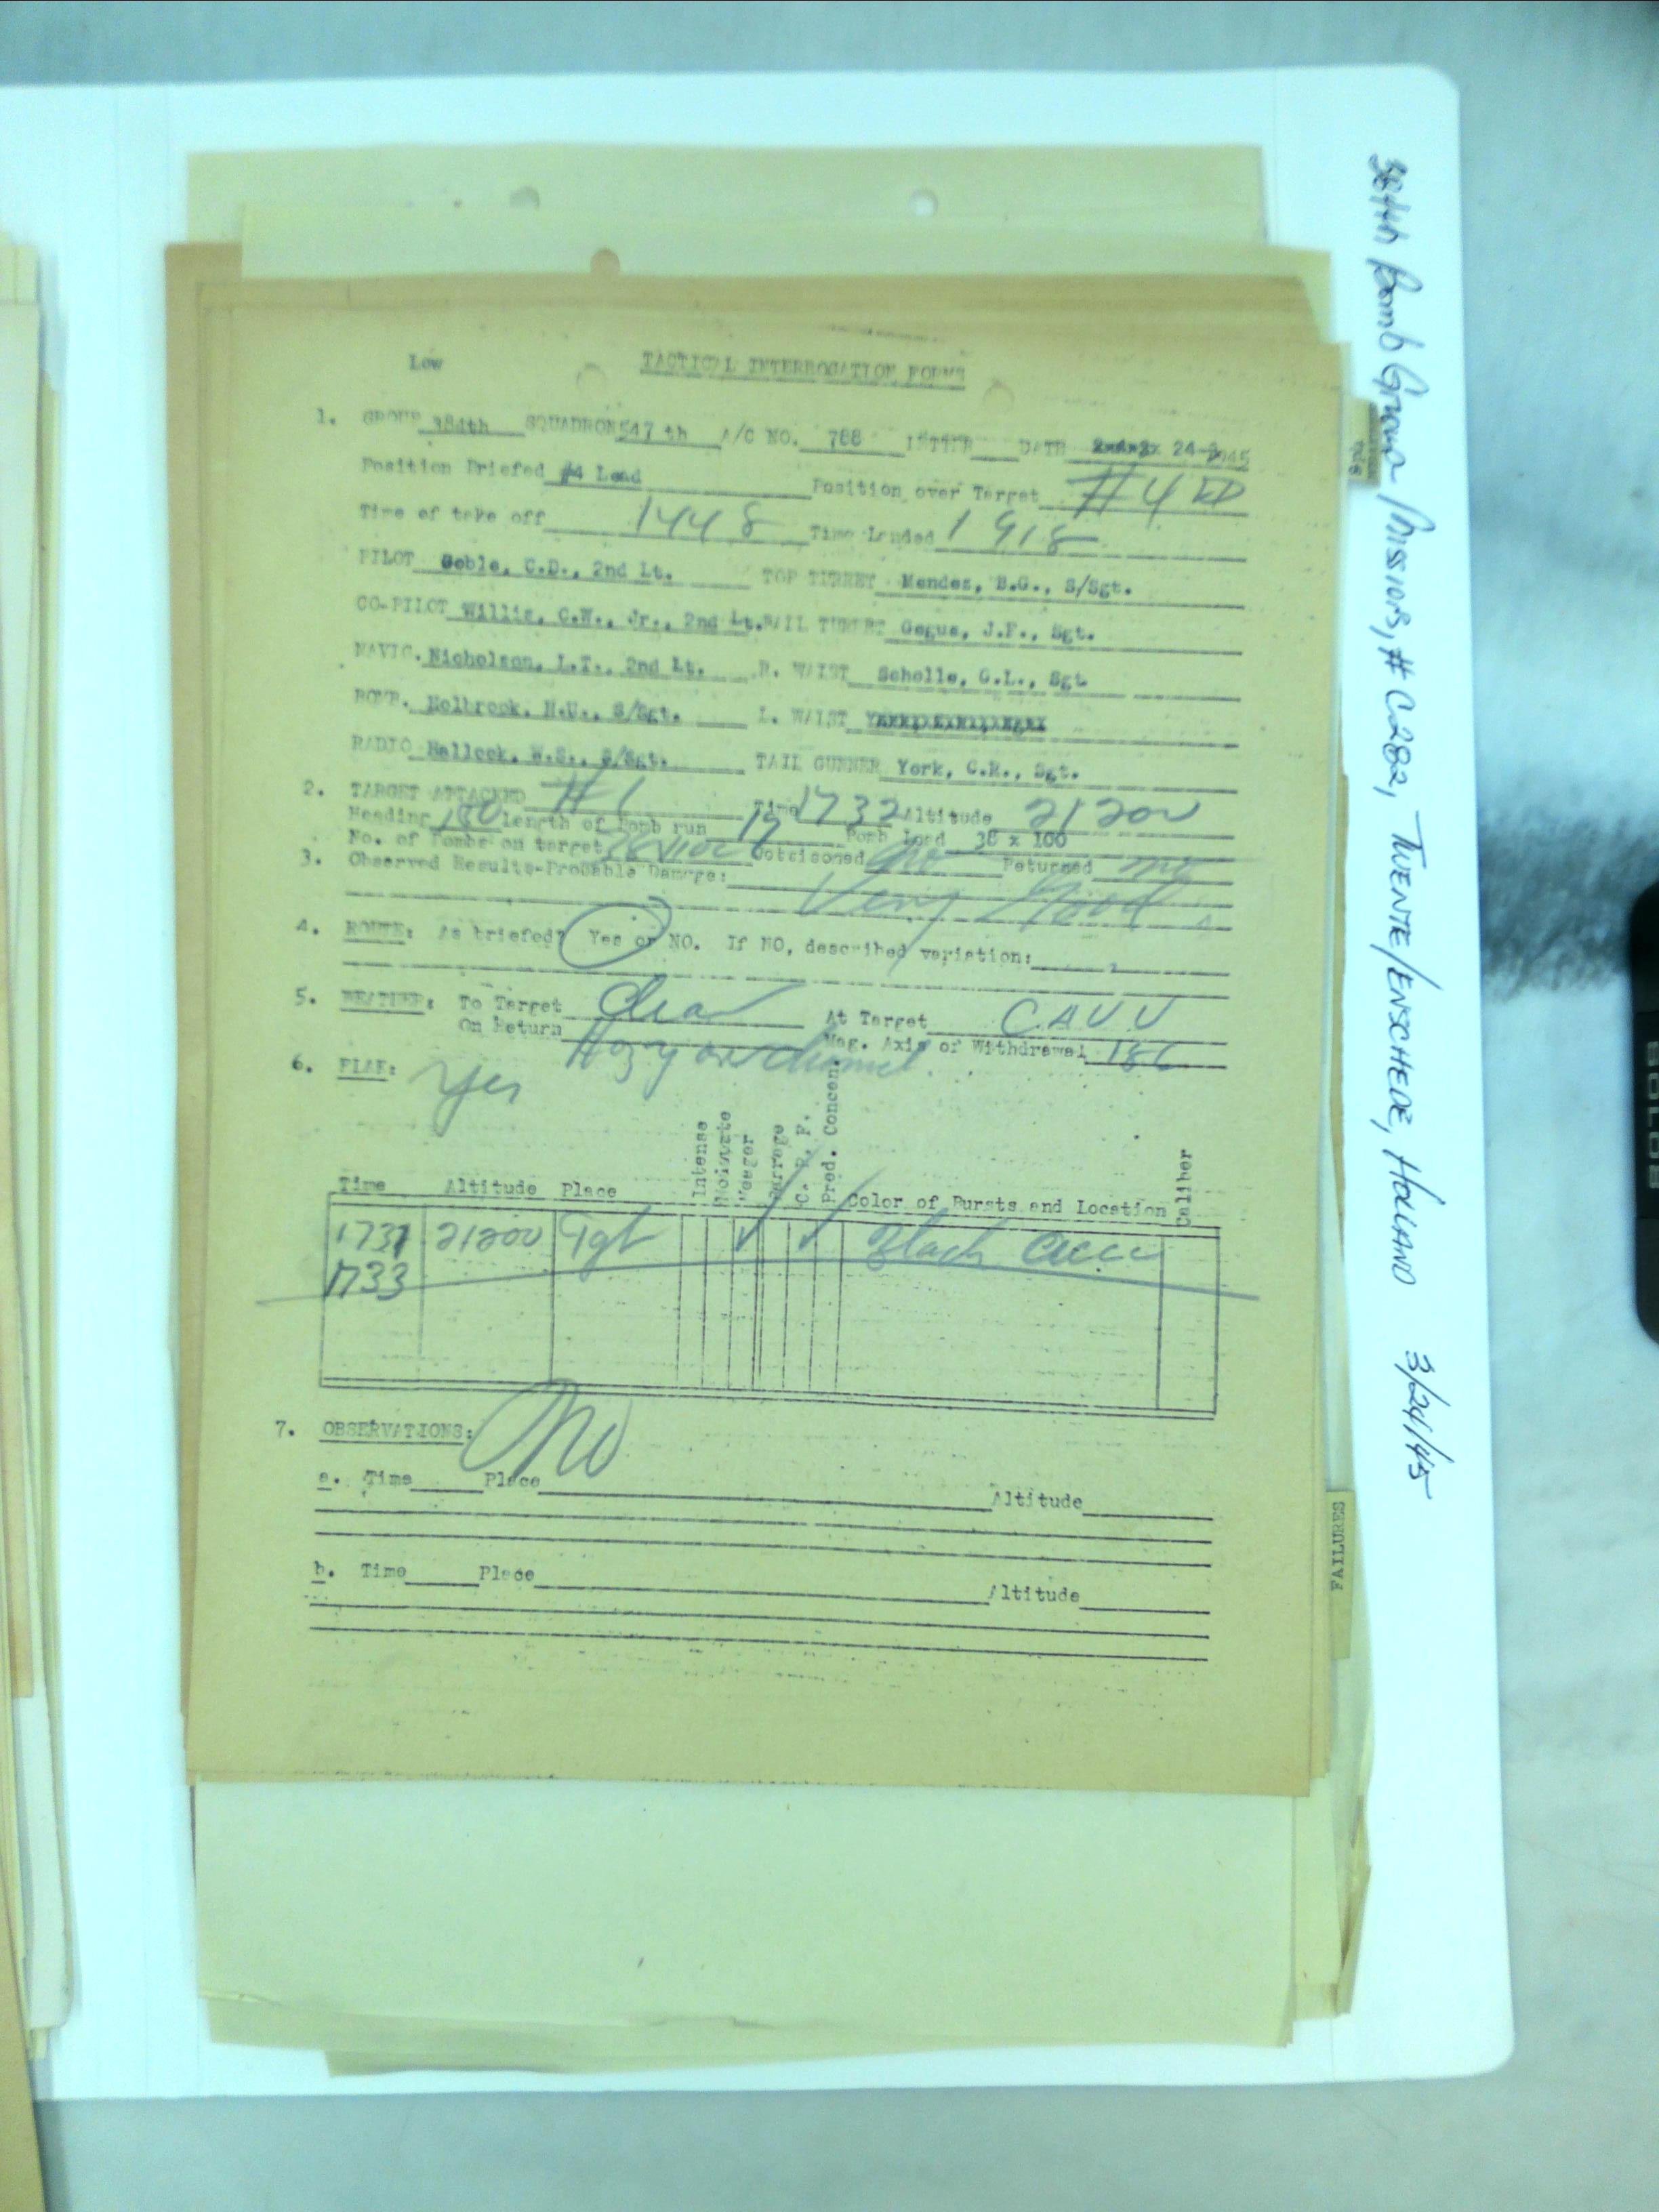 Low TACTICAL INTERROGATION FORMS
1. GROUP 384th SQUADRON 547 th A/C NO. 788 LETTER DATE 24-3 1945
Position Briefed #4 Lead Position over Target #4 LD
Time of take off 1448 Time Landed 1918
PILOT Goble, C.D., 2nd Lt. TOP TURRET Mendez, B.G., S/Sgt.
CO-PILOT Willis, C.W., Jr., 2nd Lt. BALL TURRET Gegus, J.F., Sgt.
NAVIG. Nicholson, L.T., 2nd Lt. R. WAIST Schelle, G.L., Sgt.
BOMB. Holbrook, H.U., S/Sgt. L. WAIST
RADIO Hallock, W.S., S/Sgt. TAIL GUNNER York, C.R., Sgt.
2. TARGET ATTACKED #1 Time 1732 Altitude 21200
Heading 180 length of Bomb run 17 Bomb Load 38 x 100
No. of Bombs on target 38x100 Jettisoned no Returned no
3. Observed Results-Probable Damage:
Very Good
4. ROUTE: As briefed? Yes or NO. If NO, described variation:
5. WEATHER: To Target Clear At Target CAVU
On Return Hazy over channel Mag. Axis of Withdrawal 186
6. FLAK: Yes
Time Altitude Place Intense Moderate Meager Barrage C. P. F. Pred. Concen. Color of Bursts and Location Caliber
1731 21200 Tgt ✓ ✓ Black Accu
1733
7. OBSERVATIONS: No
a. Time Place Altitude
b. Time Place Altitude
FAILURES
384th Bomb Group Mission, # C282, TWENTE/ENSCHEDE, HOLLAND 3/24/45